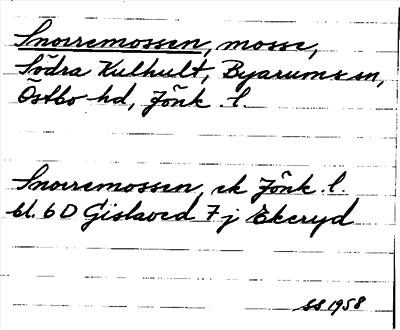 Snorremossen, mosse,
Södra Kulhult, Byarums sn,
Östbo hd, Jönk. l.
Snorremossen, ek Jönk. l.
bl. 6 D Gislaved 7 j Ekeryd
SS 1958